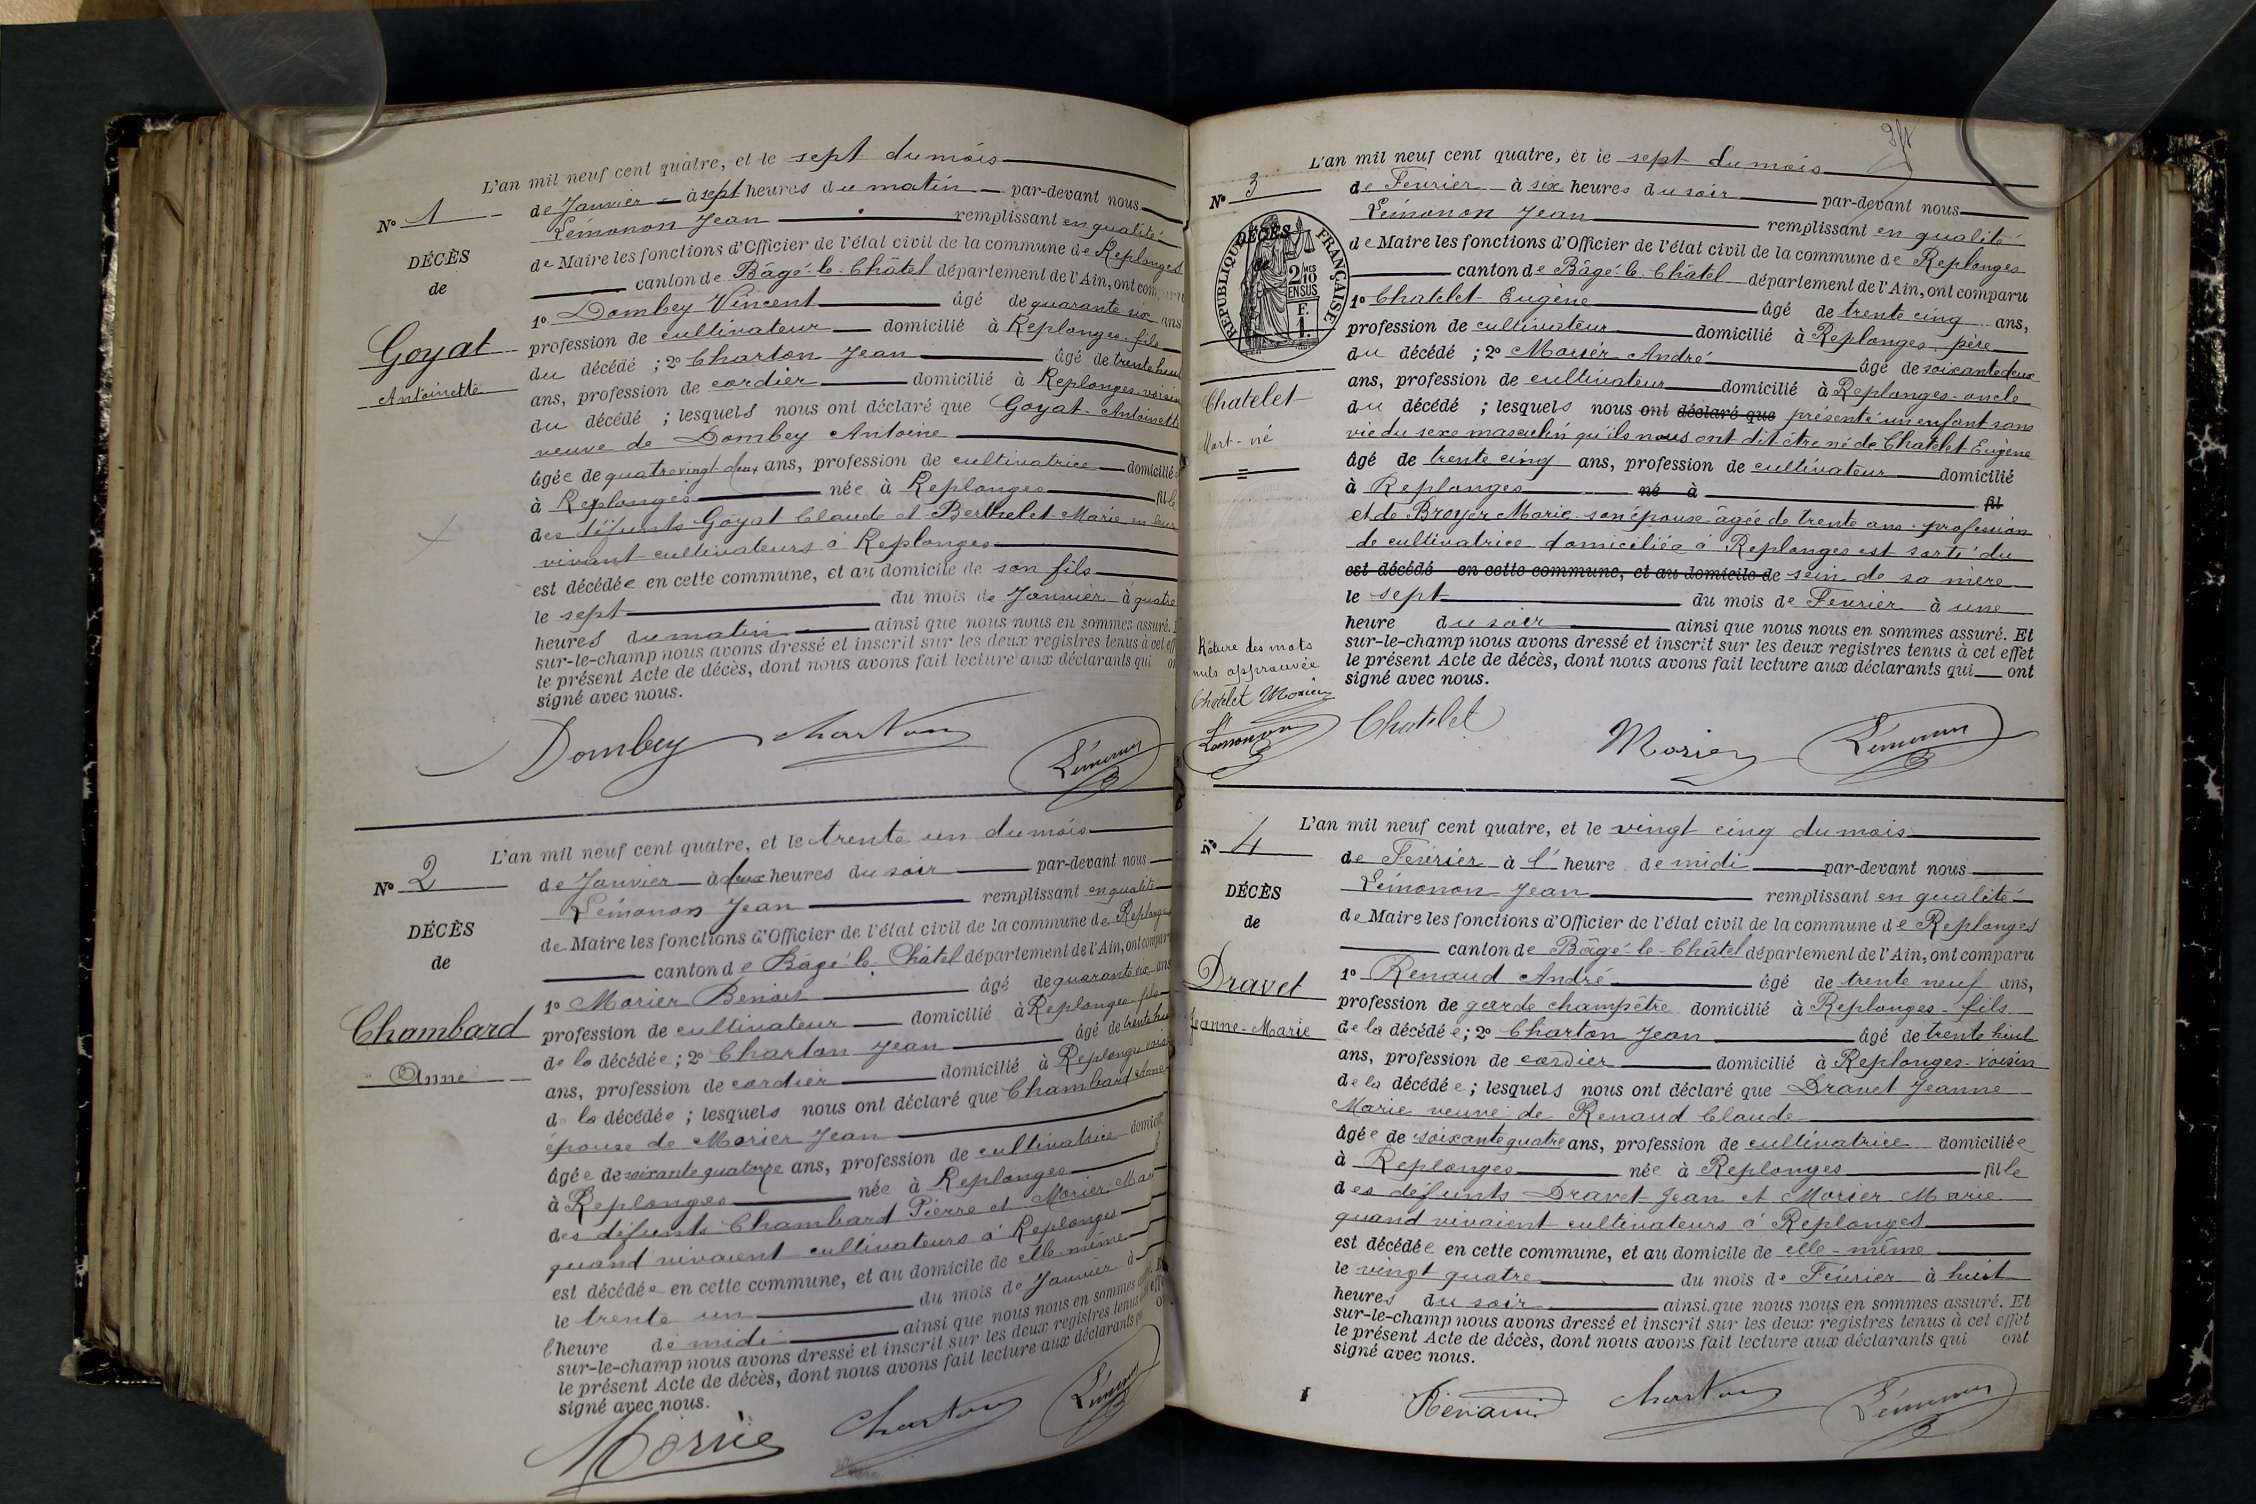 L'an mil neuf cent quatre, et le sept du mois
N° 1
de Janvier à sept heures du matin par-devant nous
Lémonon Jean remplissant en qualité
de Maire les fonctions d'Officier de l'état civil de la commune de Replonges
DÉCÈS
de
canton de Bâgé-le-Châtel département de l'Ain, ont comparu
1° Dombey Vincent âgé de quarante six ans
Goyat
Antoinette
profession de cultivateur domicilié à Replonges fils
du décédé ; 2° Charton Jean âgé de trente huit
ans, profession de cordier domicilié à Replonges voisin
du décédé ; lesquels nous ont déclaré que Goyat Antoinette
veuve de Dombey Antoine
âgée de quatre vingt deux ans, profession de cultivatrice domicilié
à Replonges née à Replonges fille
des défunts Goyat Claude et Berthelet Marie en leur
vivant cultivateurs à Replonges
est décédée en cette commune, et au domicile de son fils
le sept du mois de Janvier à quatre
heures du matin ainsi que nous nous en sommes assuré.
sur-le-champ nous avons dressé et inscrit sur les deux registres tenus à cet eff
le présent Acte de décès, dont nous avons fait lecture aux déclarants qui
signé avec nous.
Dombey Charton Lémonon
L'an mil neuf cent quatre, et le trente un du mois
N° 2
de Janvier à deux heures du soir par-devant nous
Lémonon Jean remplissant en qualité
DÉCÈS
de
de Maire les fonctions d'Officier de l'état civil de la commune de Replonges
canton de Bâgé-le-Châtel département de l'Ain, ont comparu
1° Morier Benoit âgé de quarante six ans
Chambard
Anne
profession de cultivateur domicilié à Replonges fils
de la décédée ; 2° Charton Jean âgé de trente huit
ans, profession de cordier domicilié à Replonges voisin
de la décédée ; lesquels nous ont déclaré que Chambard Anne
épouse de Morier Jean
âgée de soixante quatorze ans, profession de cultivatrice domicilié
à Replonges née à Replonges
des défunts Chambard Pierre et Morier Marie
quand vivaient cultivateurs à Replonges
est décédée en cette commune, et au domicile de elle-même
le trente un du mois de Janvier à
l'heure de midi ainsi que nous nous en sommes
sur-le-champ nous avons dressé et inscrit sur les deux registres tenus
le présent Acte de décès, dont nous avons fait lecture aux déclarants
signé avec nous.
Morier Charton Lémonon
L'an mil neuf cent quatre, et le sept du mois
N° 3
de Février à six heures du soir par-devant nous
Lémonon Jean remplissant en qualité
DÉCÈS
de
RÉPUBLIQUE FRANÇAISE
2/10 EN SUS
F. 1.
de Maire les fonctions d'Officier de l'état civil de la commune de Replonges
canton de Bâgé-le-Châtel département de l'Ain, ont comparu
1° Chatelet Eugène âgé de trente cinq ans,
profession de cultivateur domicilié à Replonges père
du décédé ; 2° Morier André âgé de soixante deux
Chatelet
Mort-né
ans, profession de cultivateur domicilié à Replonges oncle
du décédé ; lesquels nous ont déclaré que présenté un enfant sans
vie du sexe masculin qu'ils nous ont dit être né de Chatelet Eugène
âgé de trente cinq ans, profession de cultivateur domicilié
à Replonges né à fil
et de Broyer Marie son épouse âgée de trente ans profession
de cultivatrice domiciliée à Replonges est sorti du
est décédé en cette commune, et au domicile de sein de sa mère
le sept du mois de Février à une
heure du soir ainsi que nous nous en sommes assuré. Et
sur-le-champ nous avons dressé et inscrit sur les deux registres tenus à cet effet
le présent Acte de décès, dont nous avons fait lecture aux déclarants qui ont
signé avec nous.
Râture des mots
nuls approuvée
Chatelet Morier
Lémonon
Chatelet Morier Lémonon
L'an mil neuf cent quatre, et le vingt cinq du mois
N° 4
de Février à l'heure de midi par-devant nous
Lémonon Jean remplissant en qualité
DÉCÈS
de
de Maire les fonctions d'Officier de l'état civil de la commune de Replonges
canton de Bâgé-le-Châtel département de l'Ain, ont comparu
1° Renaud André âgé de trente neuf ans,
Dravet
Jeanne-Marie
profession de garde champêtre domicilié à Replonges fils
de la décédée ; 2° Charton Jean âgé de trente huit
ans, profession de cordier domicilié à Replonges voisin
de la décédée ; lesquels nous ont déclaré que Dravet Jeanne
Marie veuve de Renaud Claude
âgée de soixante quatre ans, profession de cultivatrice domiciliée
à Replonges née à Replonges fille
des défunts Dravet Jean et Morier Marie
quand vivaient cultivateurs à Replonges
est décédée en cette commune, et au domicile de elle-même
le vingt quatre du mois de Février à huit
heures du soir ainsi que nous nous en sommes assuré. Et
sur-le-champ nous avons dressé et inscrit sur les deux registres tenus à cet effet
le présent Acte de décès, dont nous avons fait lecture aux déclarants qui ont
signé avec nous.
Renaud Charton Lémonon